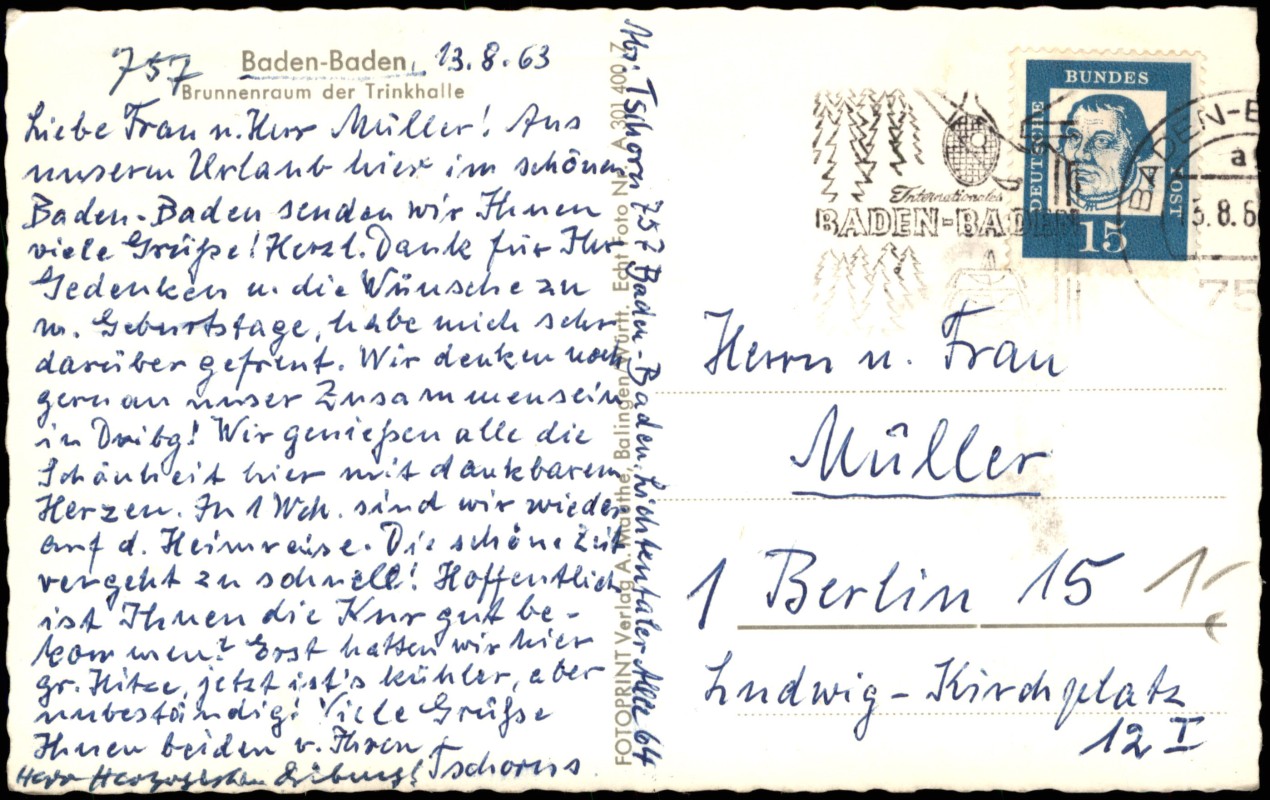 757 Baden-Baden, 13.8.63
Brunnenraum der Trinkhalle
Liebe Frau u. Herr Müller! Aus
unserm Urlaub hier im schönen
Baden-Baden senden wir Ihnen
viele Grüße! Herzl. Dank für Ihr
Gedenken u. die Wünsche zu
m. Geburtstage, habe mich sehr
darüber gefreut. Wir denken noch
gern an unser Zusammensein
in Dribg! Wir genießen alle die
Schönheit hier mit dankbarem
Herzen. In 1 Wch. sind wir wieder
auf d. Heimreise. Die schöne Zeit
vergeht zu schnell! Hoffentlich
ist Ihnen die Kur gut be-
kommen? Erst hatten wir hier
gr. Hitze, jetzt ist's kühler, aber
unbeständig! Viele Grüße
Ihnen beiden v. Ihren
Tschorns
FOTOPRINT Verlag A. Mauthe, Balingen/Württ. Echt Foto Nr. A 301 400 Z
Tschorn, 757 Baden-Baden, Lichtentaler Allee 64
Internationales
BADEN-BADEN
DEUTSCHE
BUNDES
POST
15
BADEN-B
a
3.8.6
75
Herrn u. Frau
Müller
1 Berlin 15
Ludwig-Kirchplatz
12 I